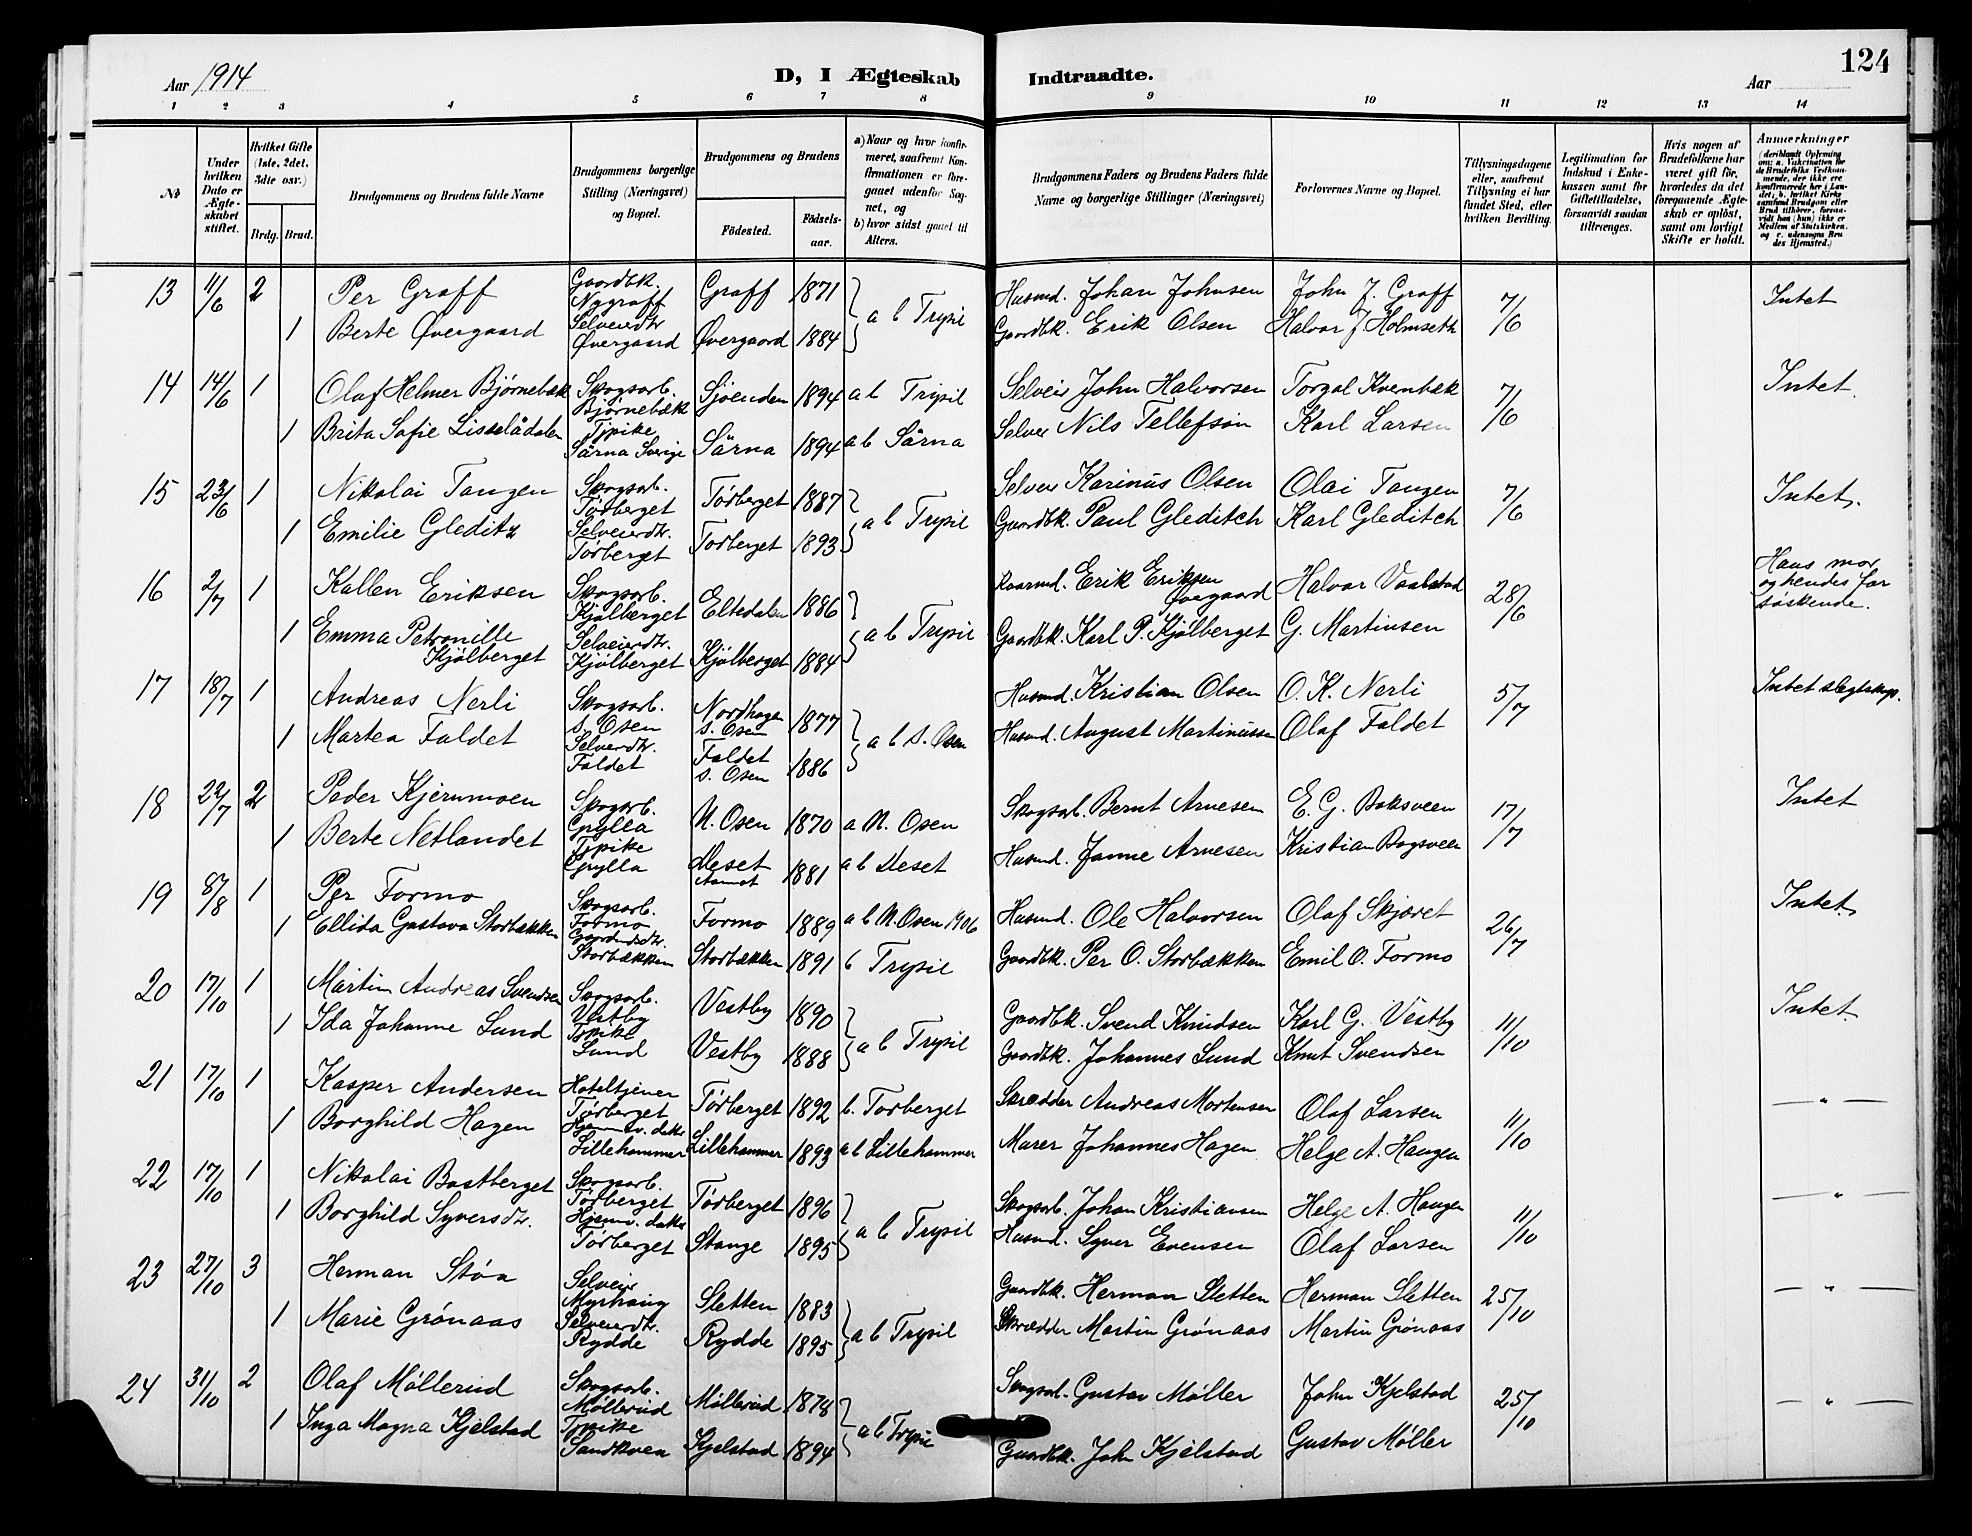 124
Aar 1914
D, I Ægteskab
Indtraadte.
Aar
1 2 3 4 5 6 7 8 9 10 11 12 13 14
No
Under hvilken Dato er Ægteskabet stiftet.
Hvilket Gifte (1ste, 2det, 3die osv.)
Brdg. Brud.
Brudgommens og Brudens fulde Navne
Brudgommens borgerlige Stilling (Næringsvei) og Bopæl.
Brudgommens og Brudens
Fødested.
Fødselsaar.
a) Naar og hvor konfirmeret, saafremt Konfirmationen er foregaaet udenfor Sognet, og
b) hvor sidst gaaet til Alters.
Brudgommens Faders og Brudens Faders fulde Navne og borgerlige Stillinger (Næringsvei)
Forlovernes Navne og Bopæl.
Tillysningsdagene eller, saafremt Tillysning ei har fundet Sted, efter hvilken Bevilling.
Legitimation for Indskud i Enkekassen samt for Giftetilladelse, forsaavidt saadan tiltrænges.
Hvis nogen af Brudefolkene har været gift før, hvorledes da det foregaaende Ægteskab er opløst, samt om lovligt Skifte er holdt.
Anmærkninger
(deriblandt Oplysning om: a. Vakcination for de Brudefolks Vedkommende, der ikke ere konfirmerede her i Landet; b. hvilket Kirkesamfund Brudgom eller Brud tilhører, forsaavidt han (hun) ikke er Medlem af Statskirken, og c. udensogns Brudes Hjemsted.)
13 11/6 2 Per Graff Gaardbk. Nygraff Graff 1871 a b Trysil Husmd. Johan Johnsen John J. Graff 7/6 Intet
1 Berte Øvergaard Selveierdtr Øvergaard Øvergaard 1884 Gaardbk. Erik Olsen Halvor J Holmseth
14 14/6 1 Olaf Helmer Bjørnebæk Skogsarb. Bjørnebæk Sjøenden 1894 a b Trysil Selveier John Halvorsen Torgal Kvernbæk 7/6 Intet.
1 Brita Sofie Lisselådalen Tpike Särna Sverige Särna 1894 a b Särna Selveier Nils Tellefson Karl Larsen
15 23/6 1 Nikolai Tangen Skogsarb. Tørberget Tørberget 1887 a b Trysil Selveier Karinus Olsen Olai Tangen 7/6 Intet.
1 Emilie Gleditz Selveierdtr. Tørberget Tørberget 1893 Gaardbk. Paul Gleditch Karl Gleditch
16 2/7 1 Kallen Eriksen Skogsarb. Kjølberget Eltedalen 1886 a b Trysil Erik Eriksen Øvergaard Halvor Vaalstad 28/6 Hans mor og hendes far søskende.
1 Emma Petronille Kjølberget Selveierdtr. Kjølberget Kjølberget 1884 Gaardbk. Karl P. Kjølberget G. Martinsen
17 18/7 1 Andreas Nerli Skogsarb. S. Osen Nordhagen S. Osen 1877 a b S. Osen Husmd. Kristian Olsen O. K. Nerli 5/7 Intet slegtskap.
1 Martea Faldet Selveierdtr. Faldet Faldet S. Osen 1886 Husmd. August Martinussen Olaf Faldet
18 22/7 2 Peder Kjernmoen Skogsarb. Gylla N. Osen 1870 a N. Osen Skogsarb. Bernt Arnesen E. G. Baksveen 17/7 Intet
1 Berte Netlandet Tpike Gylla Deset Aamot 1881 a b Deset Husmd. Janne Arnesen Kristian Bogsveen
19 8/8 1 Per Formo Skogsarb. Formo Formo 1889 a b N. Osen 1906 Husmd. Ole Halvorsen Olaf Skjæret 26/7 Intet.
1 Ellida Gustava Storbækken Storbækken Storbækken 1891 b Trysil Gaardbk. Per O. Storbækken Emil O. Formo
20 17/10 1 Martin Andreas Svendsen Skogsarb. Vestby Vestby 1890 a b Trysil Gaardbk. Svend Knudsen Karl G. Vestby 11/10 Intet.
1 Ida Johanne Lund Tpike Lund Vestby 1888 Gaardbk. Johannes Lund Knut Svendsen
21 17/10 1 Kasper Andersen Hoteltjener Tørberget Tørberget 1892 b. Tørberget Skrædder Andreas Mortensen Olaf Larsen 11/10 — " —
1 Borghild Hagen Hjemv. datter Lillehammer Lillehammer 1893 a b Lillehammer Murer Johannes Hagen Helge A. Haugen
22 17/10 1 Nikolai Bastberget Skogsarb. Tørberget Tørberget 1896 a b Trysil Skogsarb. Johan Kristiansen Helge A. Haugen 11/10 — " —
1 Borghild Syversdtr. Hjemv. datter Tørberget Stange 1895 Husmd. Syver Evensen Olaf Larsen
23 27/10 3 Herman Støa Selveier Myrhaug Sletten 1883 a b Trysil Gaardbk. Herman Sletten Herman Sletten 25/10 — " —
1 Marie Grønaas Selveierdtr. Rydde Rydde 1895 Skrædder Martin Grønaas Martin Grønaas
24 31/10 2 Olaf Møllerud Skogsarb. Møllerud Møllerud 1878 a b Trysil Skogsarb. Gustav Møller John Kjelstad 25/10 — " —
1 Inga Magna Kjelstad Tpike Sandkveen Kjelstad 1894 Gaardbk. John Kjelstad Gustav Møller